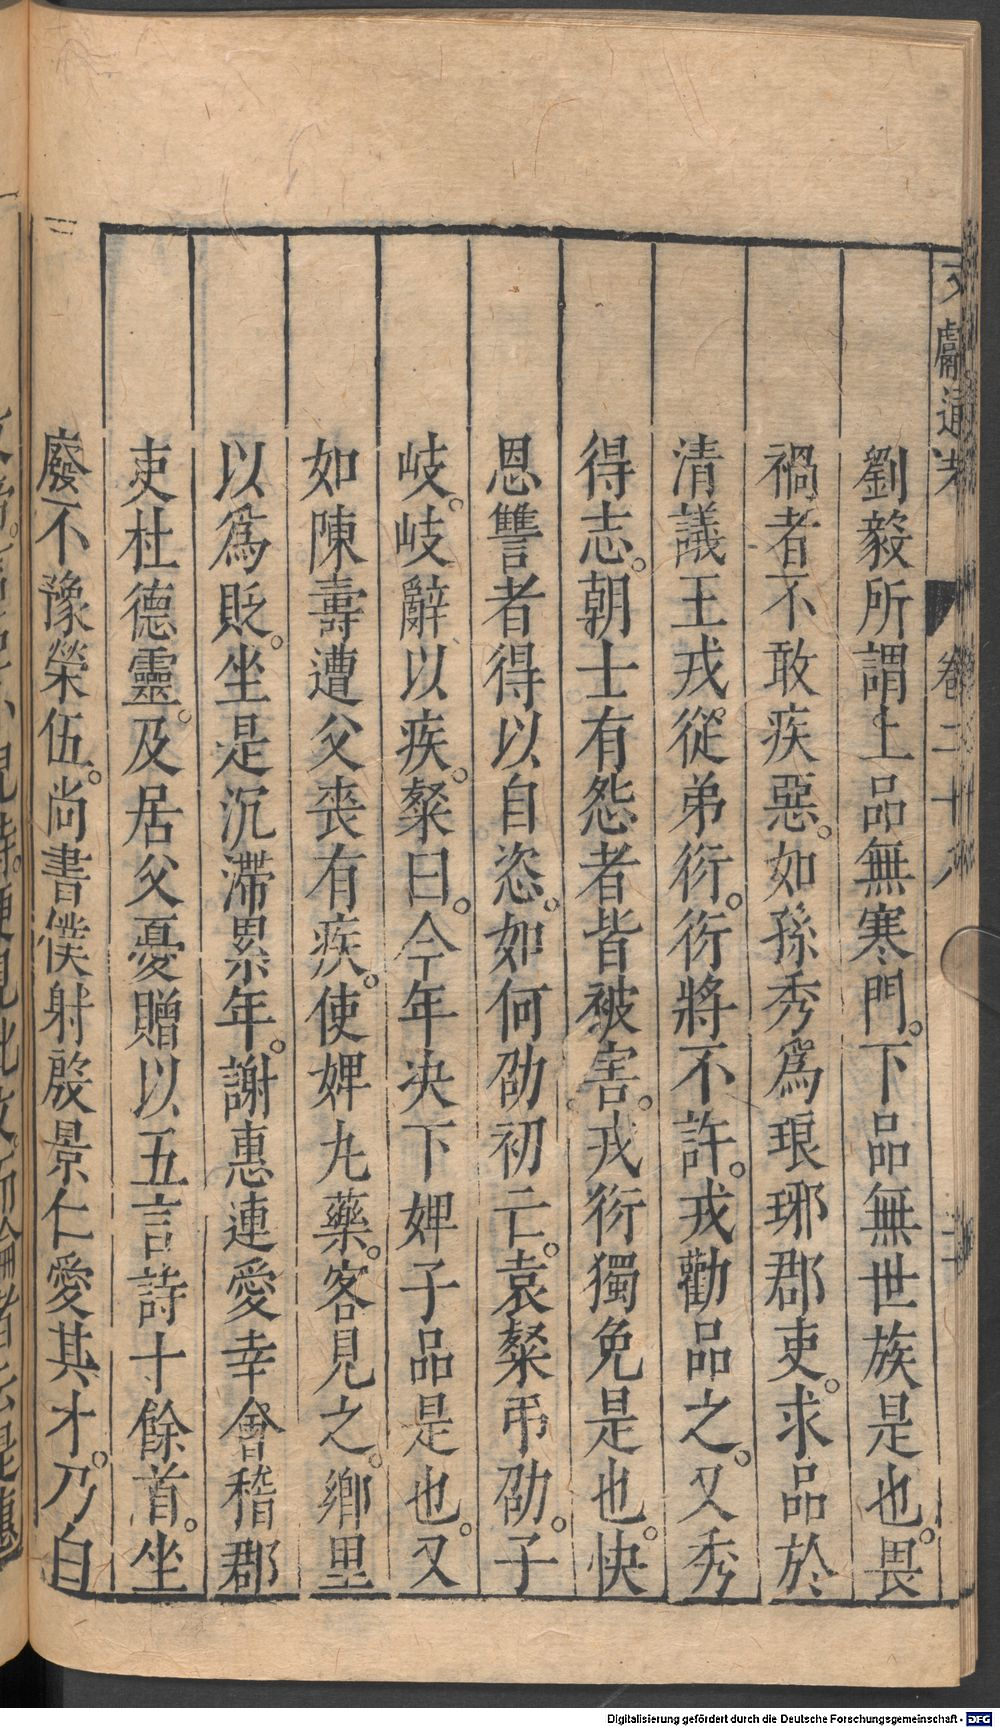 文獻通考 卷二十八
劉毅所謂上品無寒門。下品無世族是也。畏
禍者不敢疾惡。如孫秀爲琅琊郡吏。求品於
清議王戎。從弟衍。衍將不許。戎勸品之。又秀
得志。朝士有怨者皆被害。戎衍獨免是也。快
恩讐者得以自恣。如何劭初亡。袁粲弔劭。子
岐。岐辭以疾。粲曰。今年决下婢子品是也。又
如陳壽遭父喪有疾。使婢丸藥。客見之。鄉里
以爲貶。坐是沉滯累年。謝惠連愛幸會稽郡
吏杜德靈。及居父憂贈以五言詩十餘首。坐
廢不豫榮伍。尚書僕射殷景仁愛其才。乃白
Digitalisierung gefördert durch die Deutsche Forschungsgemeinschaft - DFG